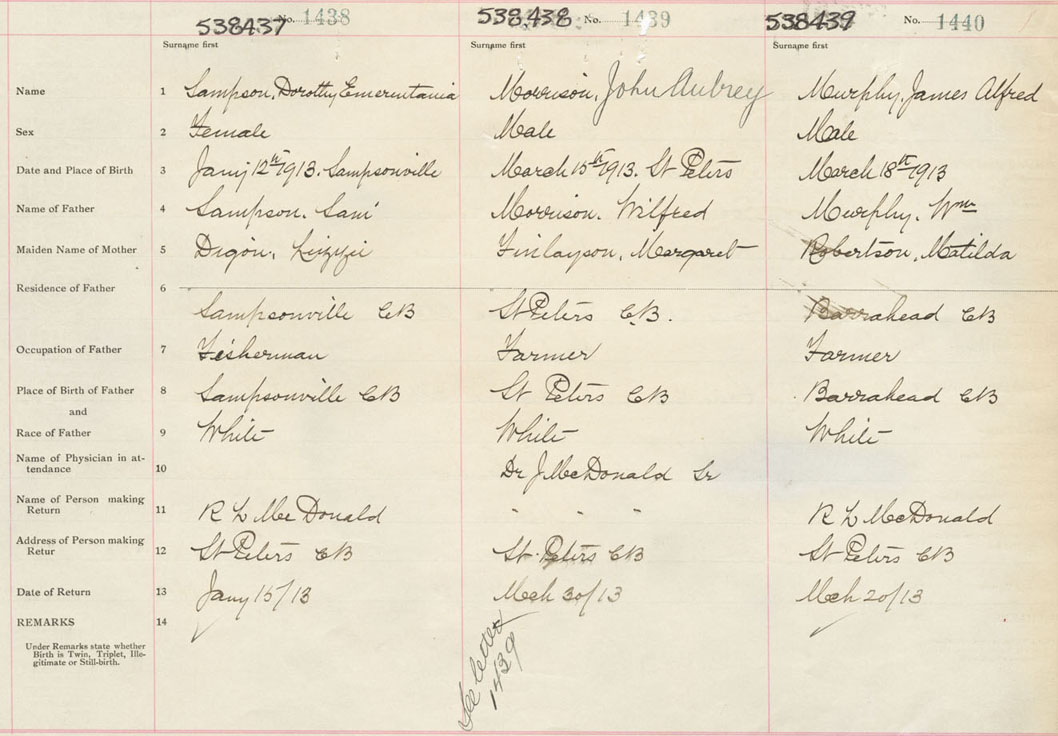 538437 No. 1438 538,438 No. 1439 538439 No. 1440
Surname first Surname first Surname first
Name 1 Sampson, Dorothy Emerentania Morrison, John Aubrey Murphy, James Alfred
Sex 2 Female Male Male
Date and Place of Birth 3 Jany 12th 1913. Sampsonville March 15th 1913. St Peters March 18th 1913
Name of Father 4 Sampson. Saml Morrison. Wilfred Murphy. Wm
Maiden Name of Mother 5 Digon. Lizzie Finlayson, Margaret Robertson, Matilda
Residence of Father 6
Sampsonville CB St Peters C.B. Barrahead CB
Occupation of Father 7 Fisherman Farmer Farmer
Place of Birth of Father 8 Sampsonville CB St Peters CB Barrahead CB
and
Race of Father 9 White White White
Name of Physician in at-
tendance 10 Dr J McDonald Sr
Name of Person making
Return 11 R L McDonald " " " R L McDonald
Address of Person making
Retur 12 St Peters CB St. Peters CB St Peters CB
Date of Return 13 Jany 15/13 Mch 30/13 Mch 20/13
REMARKS 14
Under Remarks state whether
Birth is Twin, Triplet, Ille-
gitimate or Still-birth.
See letter
1439